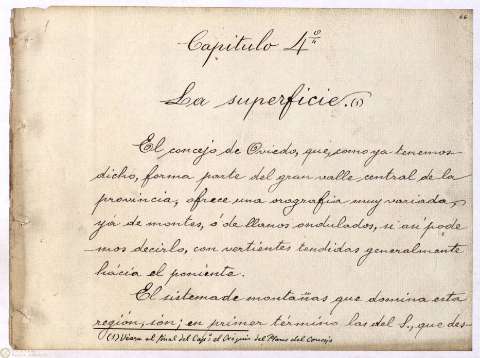 66
Capitulo 4º
La superficie.(1)
El concejo de Oviedo, que, como ya tenemos
dicho, forma parte del gran valle central de la
provincia, ofrece una orografia muy variada,
yá de montes, ó de llanos ondulados, si asi pode
mos decirlo, con vertientes tendidas generalmente
hácia el poniente.
El sistema de montañas que domina esta
región, son; en primer término las del S., que des-
(1) Véase al final del Capº el Cróquis del Plano del Concejo